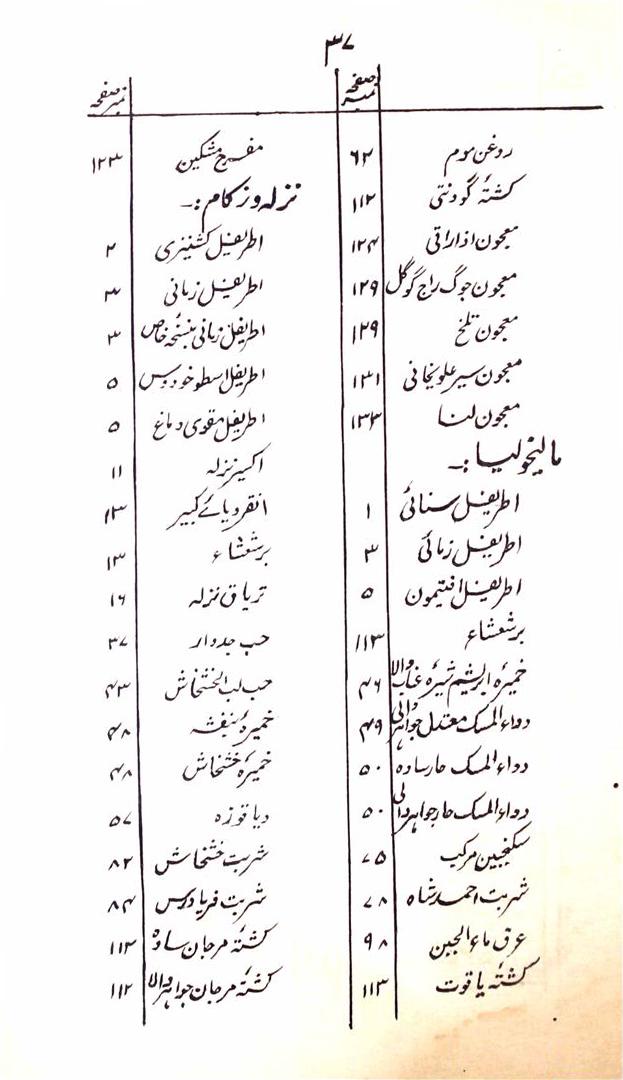 ۳۷
صفحہ نمبر
روغن موم ۶۲
کشتۂ گودنتی ۱۱۲
معجون اذاراقی ۱۲۴
معجون جوگ راج گوگل ۱۲۹
معجون تلخ ۱۲۹
معجون سیر علویخانی ۱۳۱
معجون لنا ۱۳۳
مالیخولیا :۔
اطریفل سنائی ۱
اطریفل زمانی ۳
اطریفل افتیمون ۵
برشعشاء ۱۱۳
خمیرہ ابریشم شیرہ عناب والا ۴۶
دواء المسک معتدل جواہر والی ۴۹
دواء المسک حار سادہ ۵۰
دواء المسک حار جواہر والی ۵۰
سکنجبین مرکب ۷۵
شربت احمد شاہ ۷۸
عرق ماء الجبن ۹۸
کشتۂ یاقوت ۱۱۳
صفحہ نمبر
مفرح مشکین ۱۲۳
نزلہ و زکام :۔
اطریفل کشنیزی ۲
اطریفل زمانی ۳
اطریفل زمانی بنسخہ خاص ۳
اطریفل اسطوخودوس ۵
اطریفل مقوی دماغ ۵
اکسیر نزلہ ۱۱
انقردیائے کبیر ۱۳
برشعشاء ۱۳
تریاق نزلہ ۱۶
حب جدوار ۳۷
حب لب الخشخاش ۴۳
خمیرۂ بنفشہ ۴۸
خمیرۂ خشخاش ۴۸
دیاقوزہ ۵۷
شربت خشخاش ۸۲
شربت فریادرس ۸۴
کشتۂ مرجان سادہ ۱۱۲
کشتۂ مرجان جواہر والا ۱۱۲